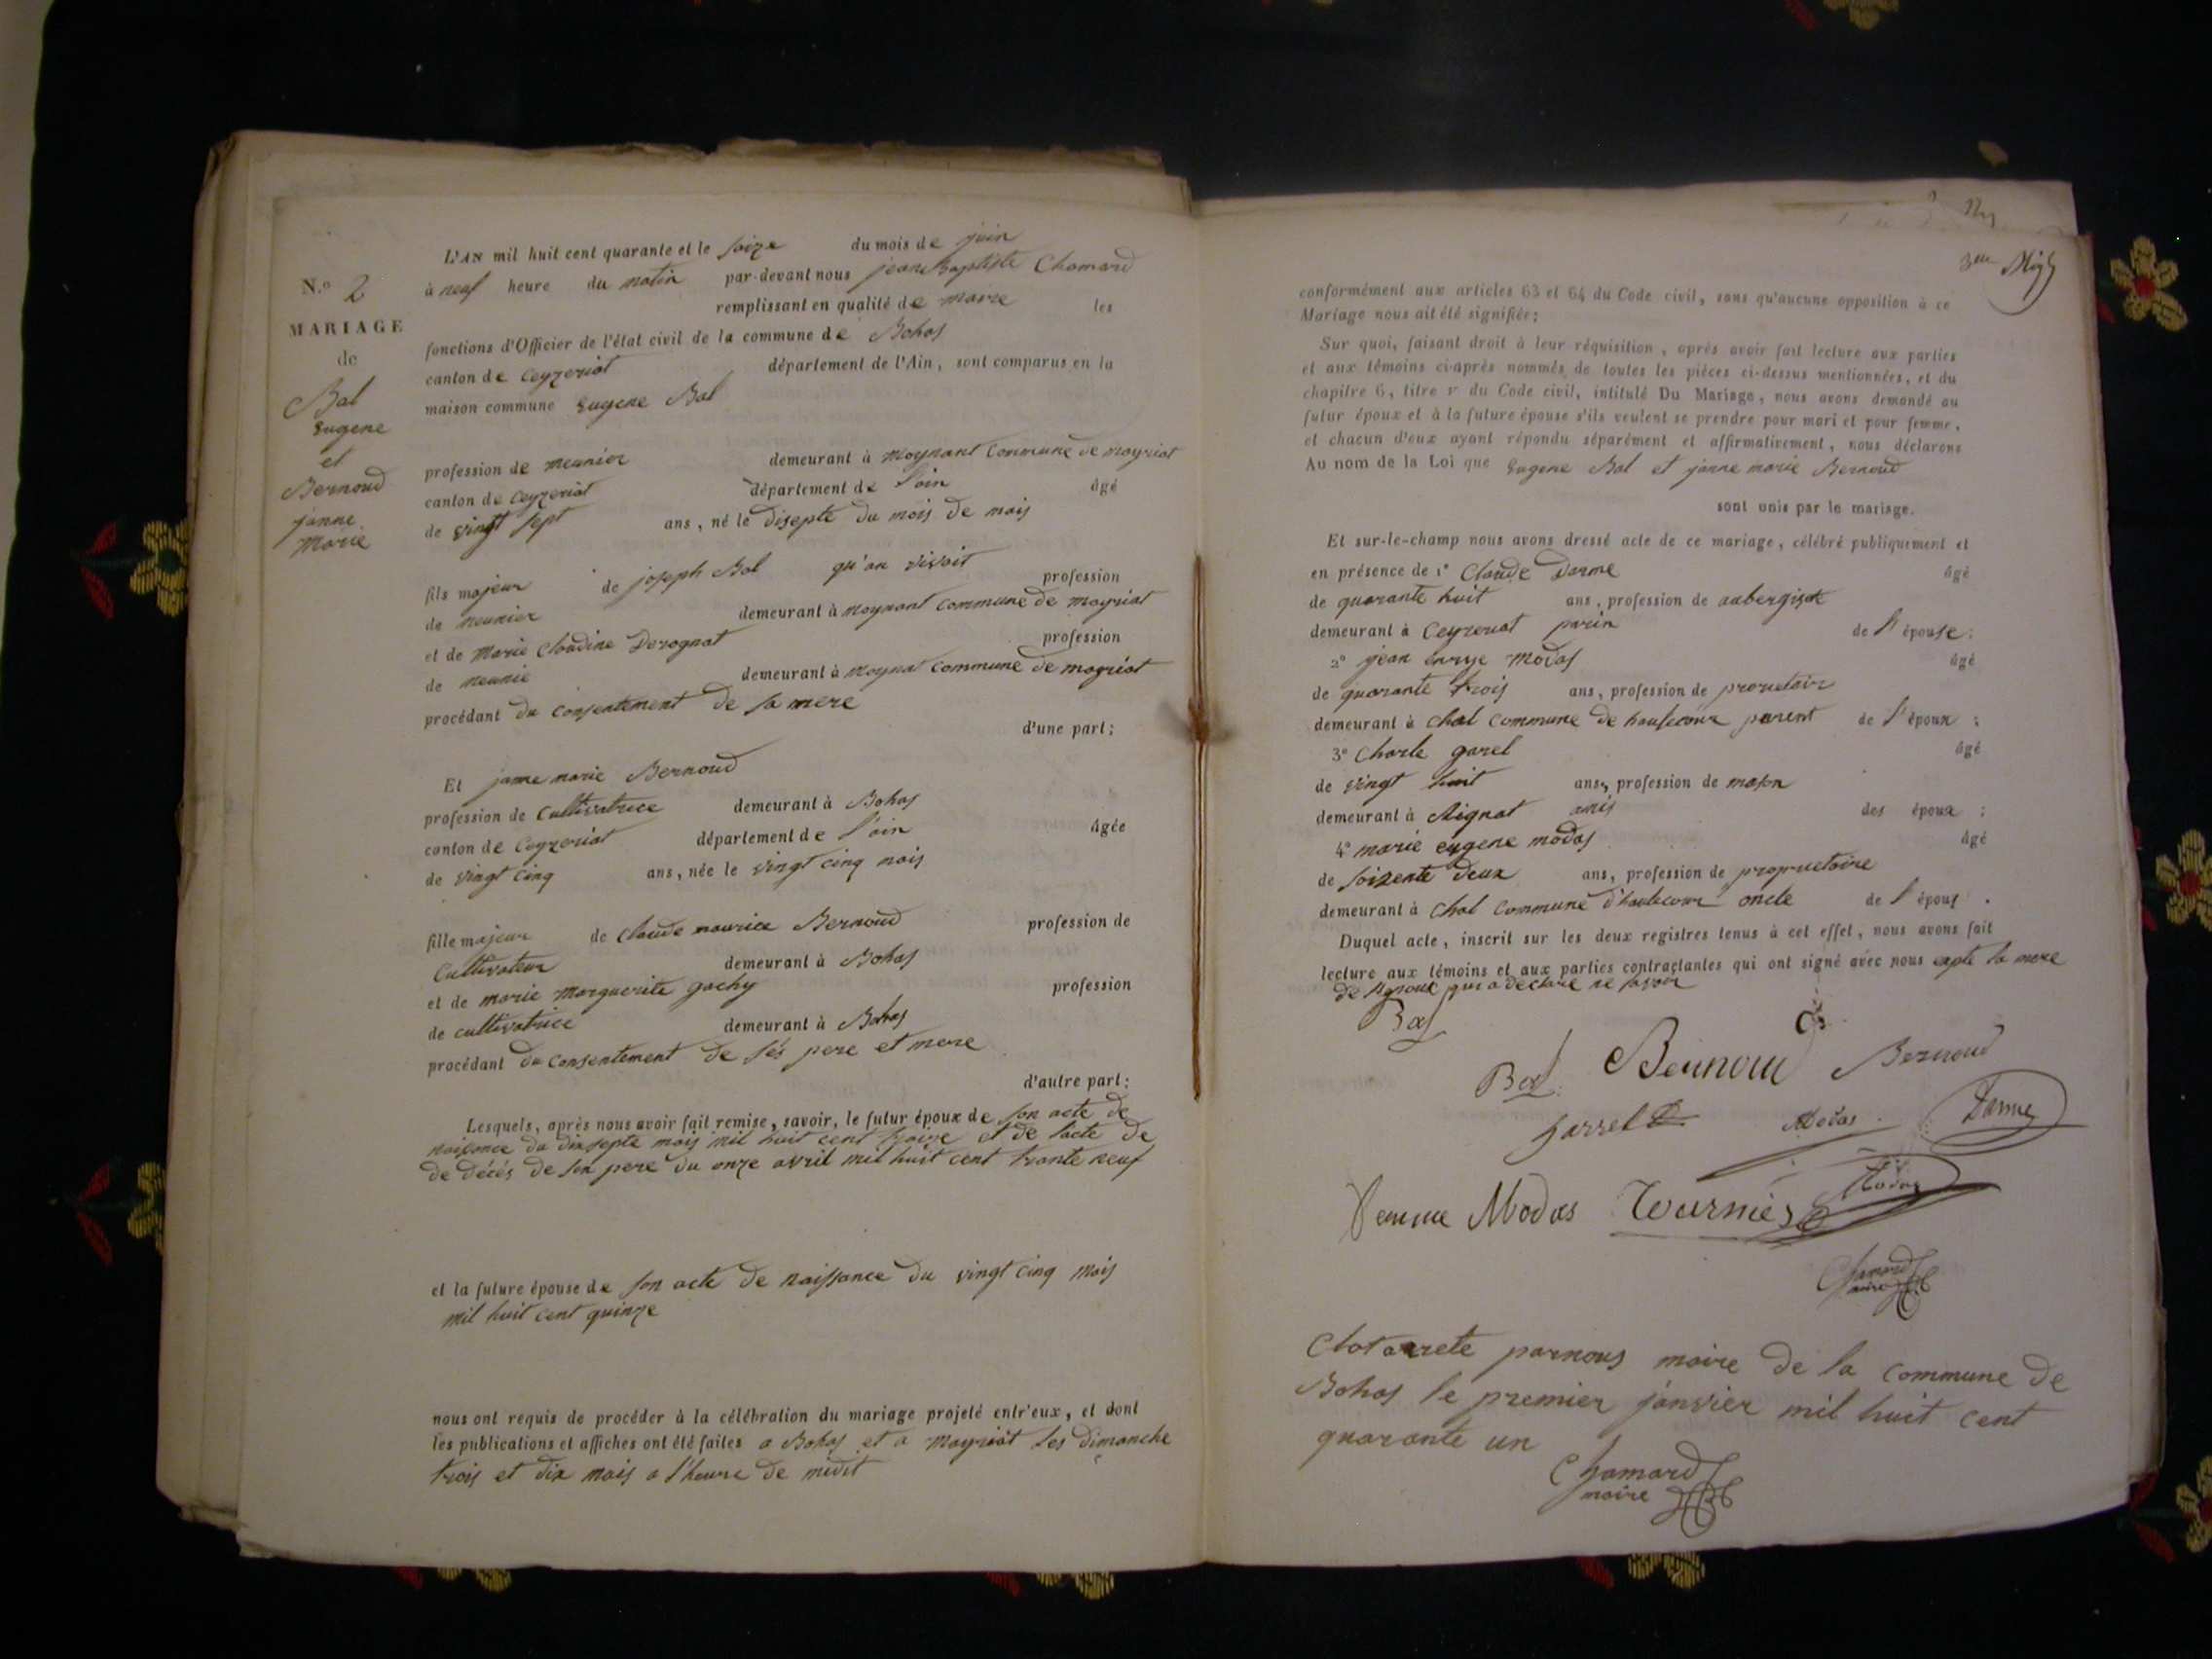 N.o 2
MARIAGE
de
Bal
Eugene
et
Bernoud
janne
Marie
L'AN mil huit cent quarante et le soize du mois de juin
à neuf heure du matin par-devant nous jean Baptiste Chamard
remplissant en qualité de maire les
fonctions d'Officier de l'état civil de la commune de Bohas
canton de Ceyzeriat département de l'Ain, sont comparus en la
maison commune Eugene Bal
profession de meunier demeurant à moynant Commune de mayriat
canton de Ceyzeriat département de l'ain âgé
de vingt sept ans, né le disepte du mois de mais
fils majeur de joseph Bal qu'an vivoit profession
de meunier demeurant à moynant Commune de mayriat
et de Marie Cloudine Derognat profession
de meunie demeurant à Moynat Commune de mayriat
procédant du Consentement de sa mere
d'une part;
Et janne marie Bernoud
profession de Cultivatrice demeurant à Bohas
canton de Ceyzeriat département de l'ain âgée
de vingt cinq ans, née le vingt cinq mais
fille majeur de Claude maurice Bernoud profession de
Cultivateur demeurant à Bohas
et de marie Marguerite gachy profession
de cultivatrice demeurant à Bohas
procédant du consentement de sés pere et mere
d'autre part;
Lesquels, après nous avoir fait remise, savoir, le futur époux de son acte de
naissance du dixsepte mais mil huit cent traize et de l'acte de
de décés de son pere du onze avril mil huit cent trante neuf
et la future épouse de son acte de naissance du vingt cinq Mais
mil huit cent quinze
nous ont requis de procéder à la célébration du mariage projeté entr'eux, et dont
les publications et affiches ont été faites a Bohas et a Mayriat les dimanche
trois et dix mais a l'heure de midit
3me
conformément aux articles 63 et 64 du Code civil, sans qu'aucune opposition à ce
Mariage nous ait été signifiée;
Sur quoi, faisant droit à leur réquisition, après avoir fait lecture aux parties
et aux témoins ci-après nommés de toutes les pièces ci-dessus mentionnées, et du
chapitre 6, titre v du Code civil, intitulé Du Mariage, nous avons demandé au
futur époux et à la future épouse s'ils veulent se prendre pour mari et pour femme,
et chacun d'eux ayant répondu séparément et affirmativement, nous déclarons
Au nom de la Loi que Eugene Bal et janne marie Bernoud
sont unis par le mariage.
Et sur-le-champ nous avons dressé acte de ce mariage, célébré publiquement et
en présence de 1° Claude Darme âgé
de quarante huit ans, profession de aubergiste
demeurant à Ceyzeriat de l'épouse;
2° jean Modas âgé
de quarante trois ans, profession de
demeurant à Chal Commune de hautecour parent de l'époux;
3° Charle garel âgé
de vingt huit ans, profession de mason
demeurant à amis des époux;
4° marie eygene modas âgé
de soizente deux ans, profession de proprietoire
demeurant à Chal Commune d'hautecour oncle de l'époux.
Duquel acte, inscrit sur les deux registres tenus à cet effet, nous avons fait
lecture aux témoins et aux parties contractantes qui ont signé avec nous expte la mere
de l'epoux qui a déclaré ne savoir
Bal
Bal Bernoud Bernoud
garrel Modas Darme
femme Modas Tournier Modas
Chamard
maire
Clot arrete parnous maire de la Commune de
Bohas le premier janvier mil huit cent
quarante un
Chamard
maire